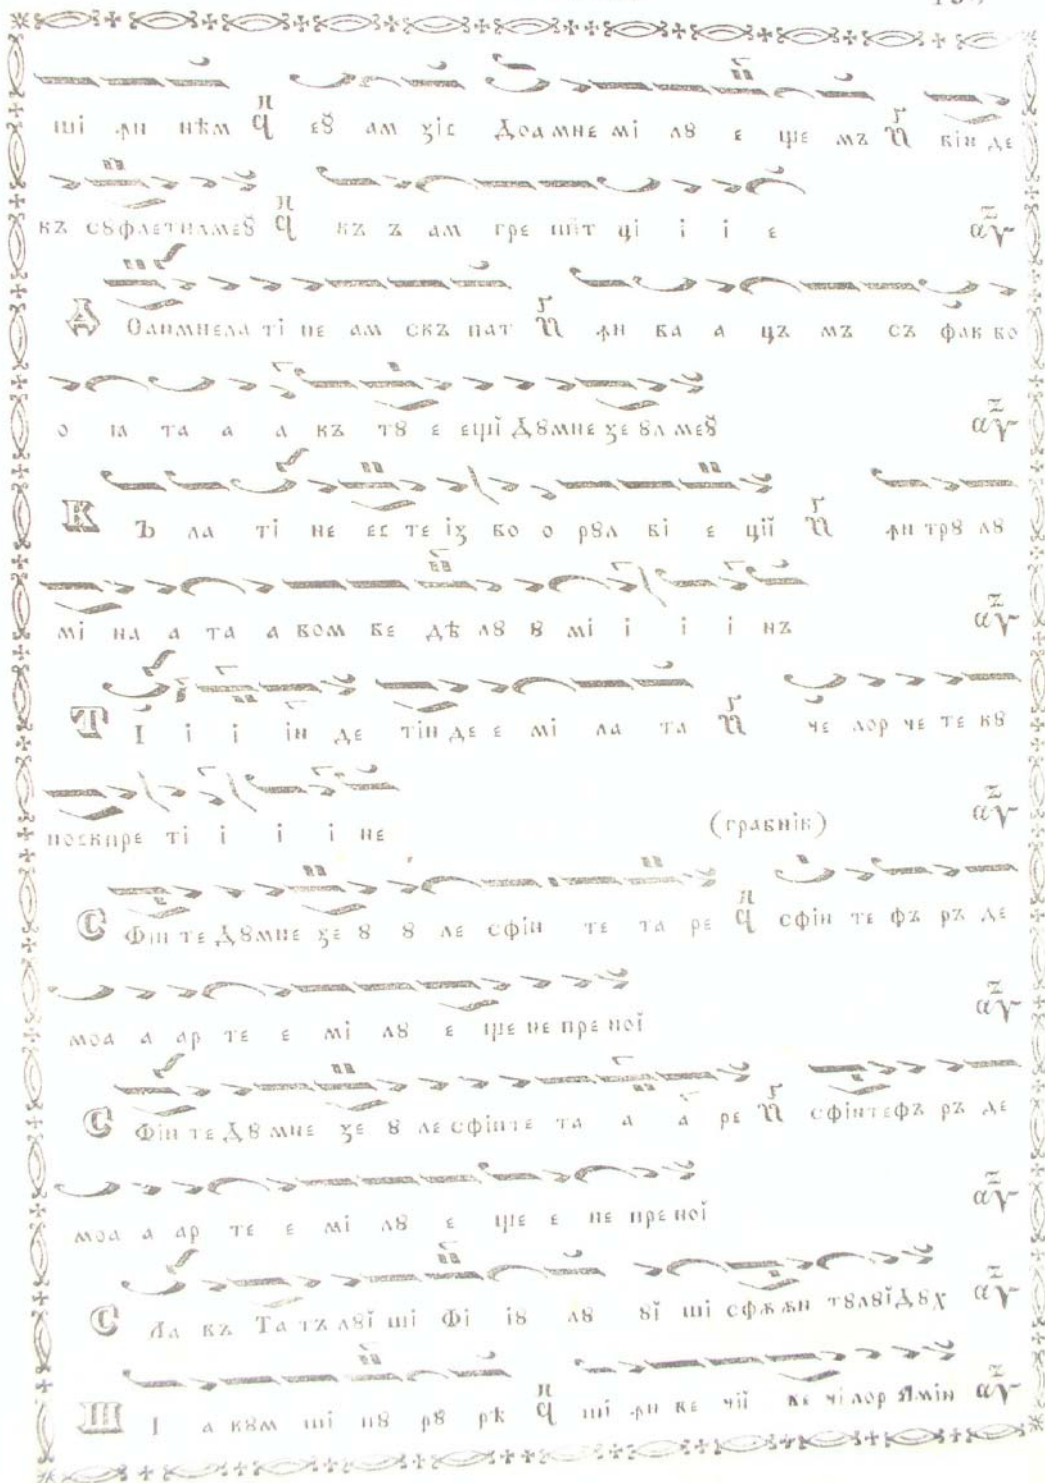 ші ꙟн нѣм еꙋ ам зіс Доамне мі лꙋ е ще мъ він де
къ сꙋфлетꙋлмеꙋ къ ъ ам гре шіт ці і і е
Д Оамнела ті не ам скъ пат ꙟн ва а цъ мъ съ фак во
о ꙗ та а а къ тꙋ е ещй Дꙋмне зе ꙋл меꙋ
К Ъ ла ті не єс те із во о рꙋл ві е ції ꙟн трꙋ лꙋ
мі на а та а вом ве дѣ лꙋ ꙋ мі і і і нъ
Т І і і ін де тін де е мі ла та че лор че те кꙋ
носкпре ті і і і не (грабнік)
С Фін те Дꙋмне зе ꙋ ꙋ ле сфін те та ре сфін те фъ ръ де
моа а ар те е мі лꙋ е ще не пре ной
С Фін те Дꙋ мне зе ꙋ ле сфінте та а а ре сфінтефъ ръ де
моа а ар те е мі лꙋ е ще е не пре ной
С Ла въ Та тъ лꙋй ші Фі іꙋ лꙋ ꙋй ші сфѫ ѫн тꙋлꙋйДꙋх
Ш І а кꙋм ші пꙋ рꙋ рѣ ші ꙟн ве чїй ве чі лор Амін